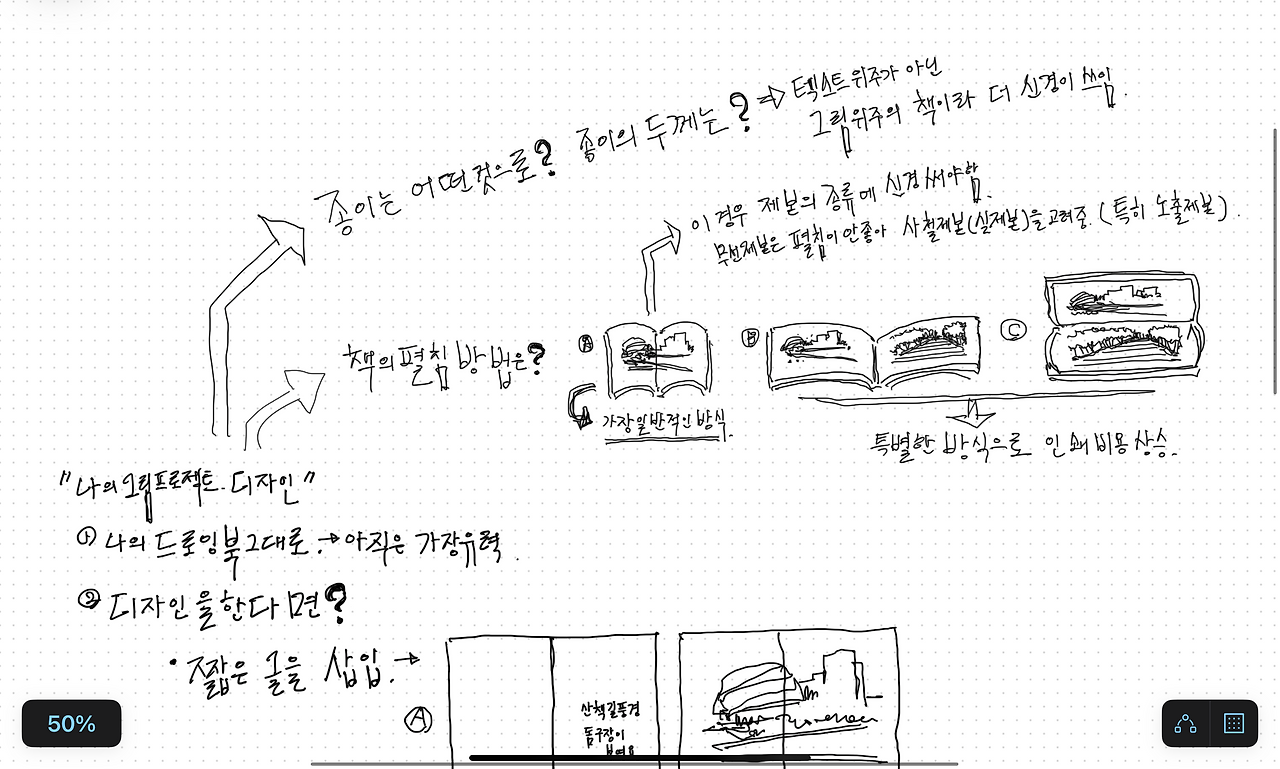 종이는 어떤것으로? 종이의 두께는? ⇒ 텍스트위주가 아닌
그림위주의 책이라 더 신경이 쓰임.
이 경우 제본의 종류에 신경써야함.
무선제본은 펼침이 안좋아 사철제본(실제본)을 고려중. (특히 노출제본).
책의 펼침 방법은?
A
B
C
가장일반적인 방식.
특별한 방식으로 인쇄비용 상승.
"나의그림프로젝트. 디자인"
① 나의 드로잉북그대로. → 아직은 가장유력.
② 디자인을한다면?
• 짧은 글을 삽입. →
A
산책길풍경
돔구장이
보여요
50%